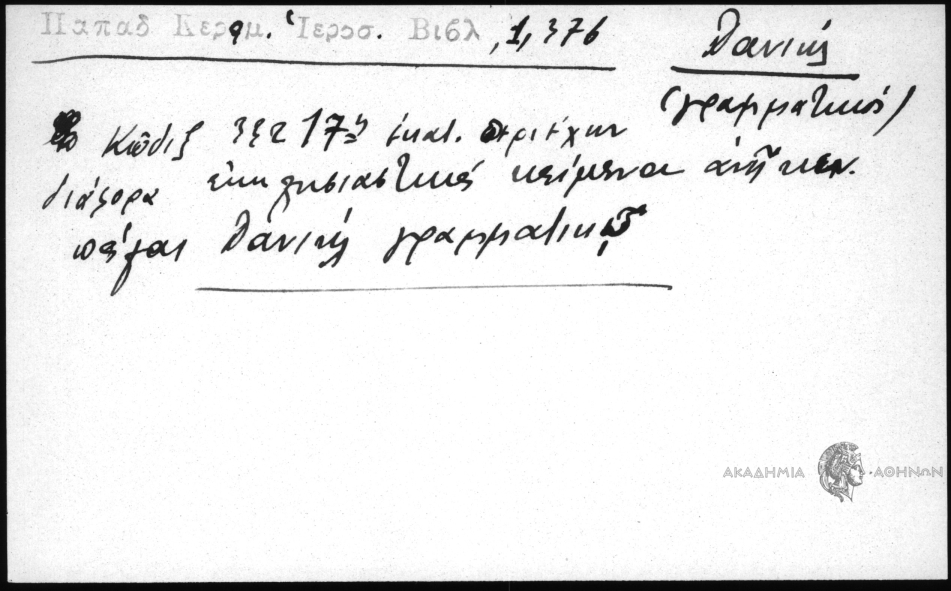 Παπαδ Κεραμ. Ἱεροσ. Βιβλ ,1, 376
Δανιήλ
(γραμματικός)
Κῶδιξ τξε 17ου ἑκατ. περιέχων
διάφορα ἐκκλησιαστικὰ κείμενα ἀνῆκεν.
πάλαι Δανιήλ γραμματικῷ
ΑΚΑΔΗΜΙΑ ΑΘΗΝΩΝ